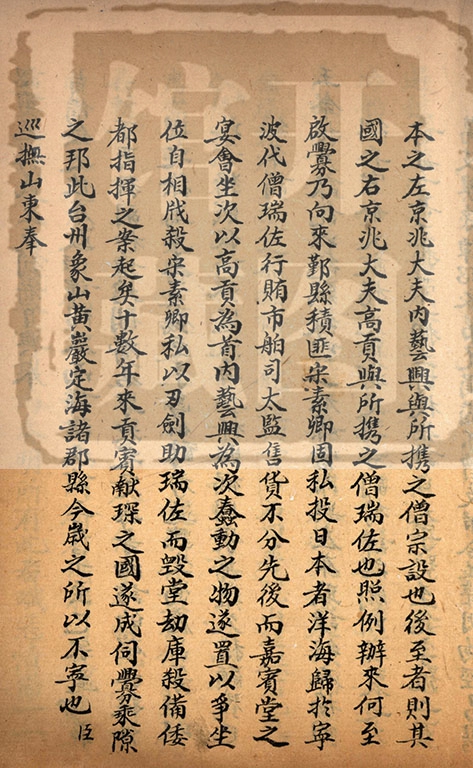 本之左京兆大夫内藝興與所攜之僧宗設也後至者則其
國之右京兆大夫高貢與所攜之僧瑞佐也照例辦來何至
啟釁乃向來鄞縣積匪宋素卿固私投日本者洋海歸於寧
波代僧瑞佐行賄市舶司太監售貨不分先後而嘉賓堂之
宴會坐次以高貢為首内藝興為次蠢動之物遂置以爭坐
位自相戕殺宋素卿私以刃劍助瑞佐而毀堂劫庫殺備倭
都指揮之案起矣十數年來貢賓獻琛之國遂成伺釁乘隙
之邦此台州象山黃巖定海諸郡縣今歲之所以不寧也臣
巡撫山東奉